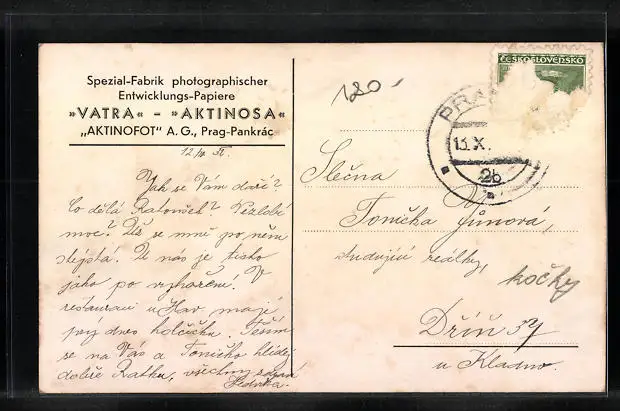 Spezial-Fabrik photographischer
Entwicklungs-Papiere
»VATRA« - »AKTINOSA«
„AKTINOFOT" A. G., Prag-Pankrác
Jak se Vám daří?
Co dělá Ratoušek? Nezlobí
moc? Že se mně po něm
stejská. U nás je ticho
jako po vyhoření. V
restauraci u Hav. mají
prý dnes holčičku. Těším
se na Vás a Toničko hlídej
dobře Ratku, všechny zdraví
120.-
ČESKOSLOVENSKO
PRA
13.X.
2b
Slečna
Tonička Jůnová,
studující reálky,
kočky
Dříň 37
u Kladno.